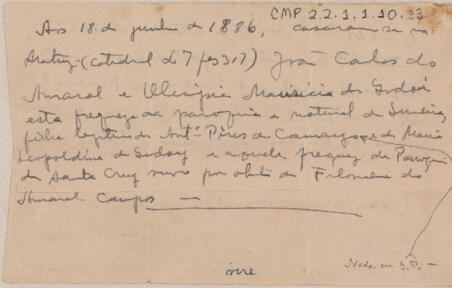 CMP 2.2.1.1.10.33
Aos 18 de junho de 1886, casaram-se na
Matriz (catedral L 7 fes 317) João Carlos do
Amaral e Olimpia Mauricia de Godoi
esta fregueza da paroquia e natural de Limeira,
filha legitima de Antº Pires de Camargo e de Maria
Leopoldina de Godoy e aquele freguez da Paroquia
de Santa Cruz viuvo por obito de Filomena do
Amaral Campos —
Nada em S.P. —
vire